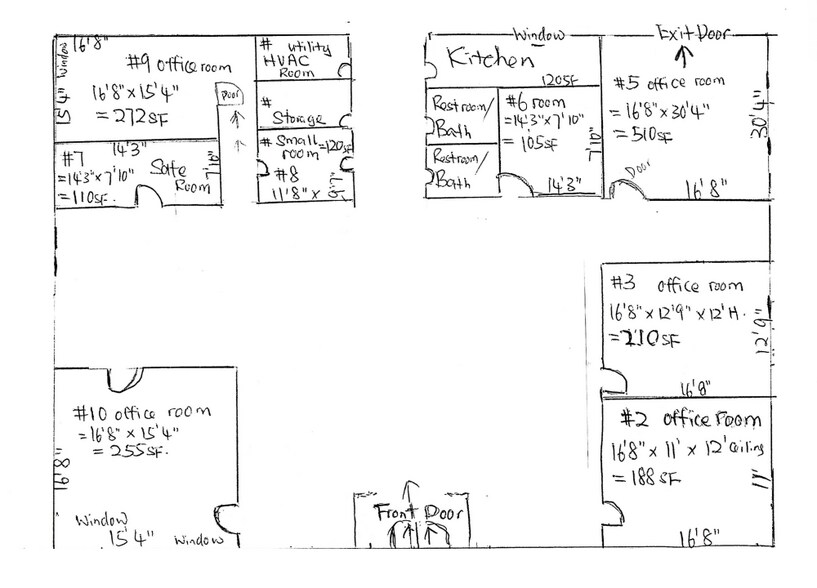 Window
16'8"
#9 office room
16'8" x 15'4"
= 272 SF
15'4"
Door
# utility
HVAC
Room
#
Storage
# Small
room = 120 SF
#8
11'8" x 9'7"
#7
14'3"
Safe
Room
= 14'3" x 7'10"
= 110 SF.
7'10"
Window
Kitchen
120 SF
Restroom/
Bath
Restroom/
Bath
#6 room
= 14'3" x 7'10"
= 105 SF
7'10"
14'3"
Exit Door
#5 office room
= 16'8" x 30'4"
= 510 SF
30'4"
Door
16'8"
#3 office room
16'8" x 12'9" x 12'H.
= 210 SF
12'9"
16'8"
#2 office room
16'8" x 11' x 12' Ceiling
= 188 SF
11'
16'8"
#10 office room
= 16'8" x 15'4"
= 255 SF.
16'8"
Window
15'4" Window
Front Door